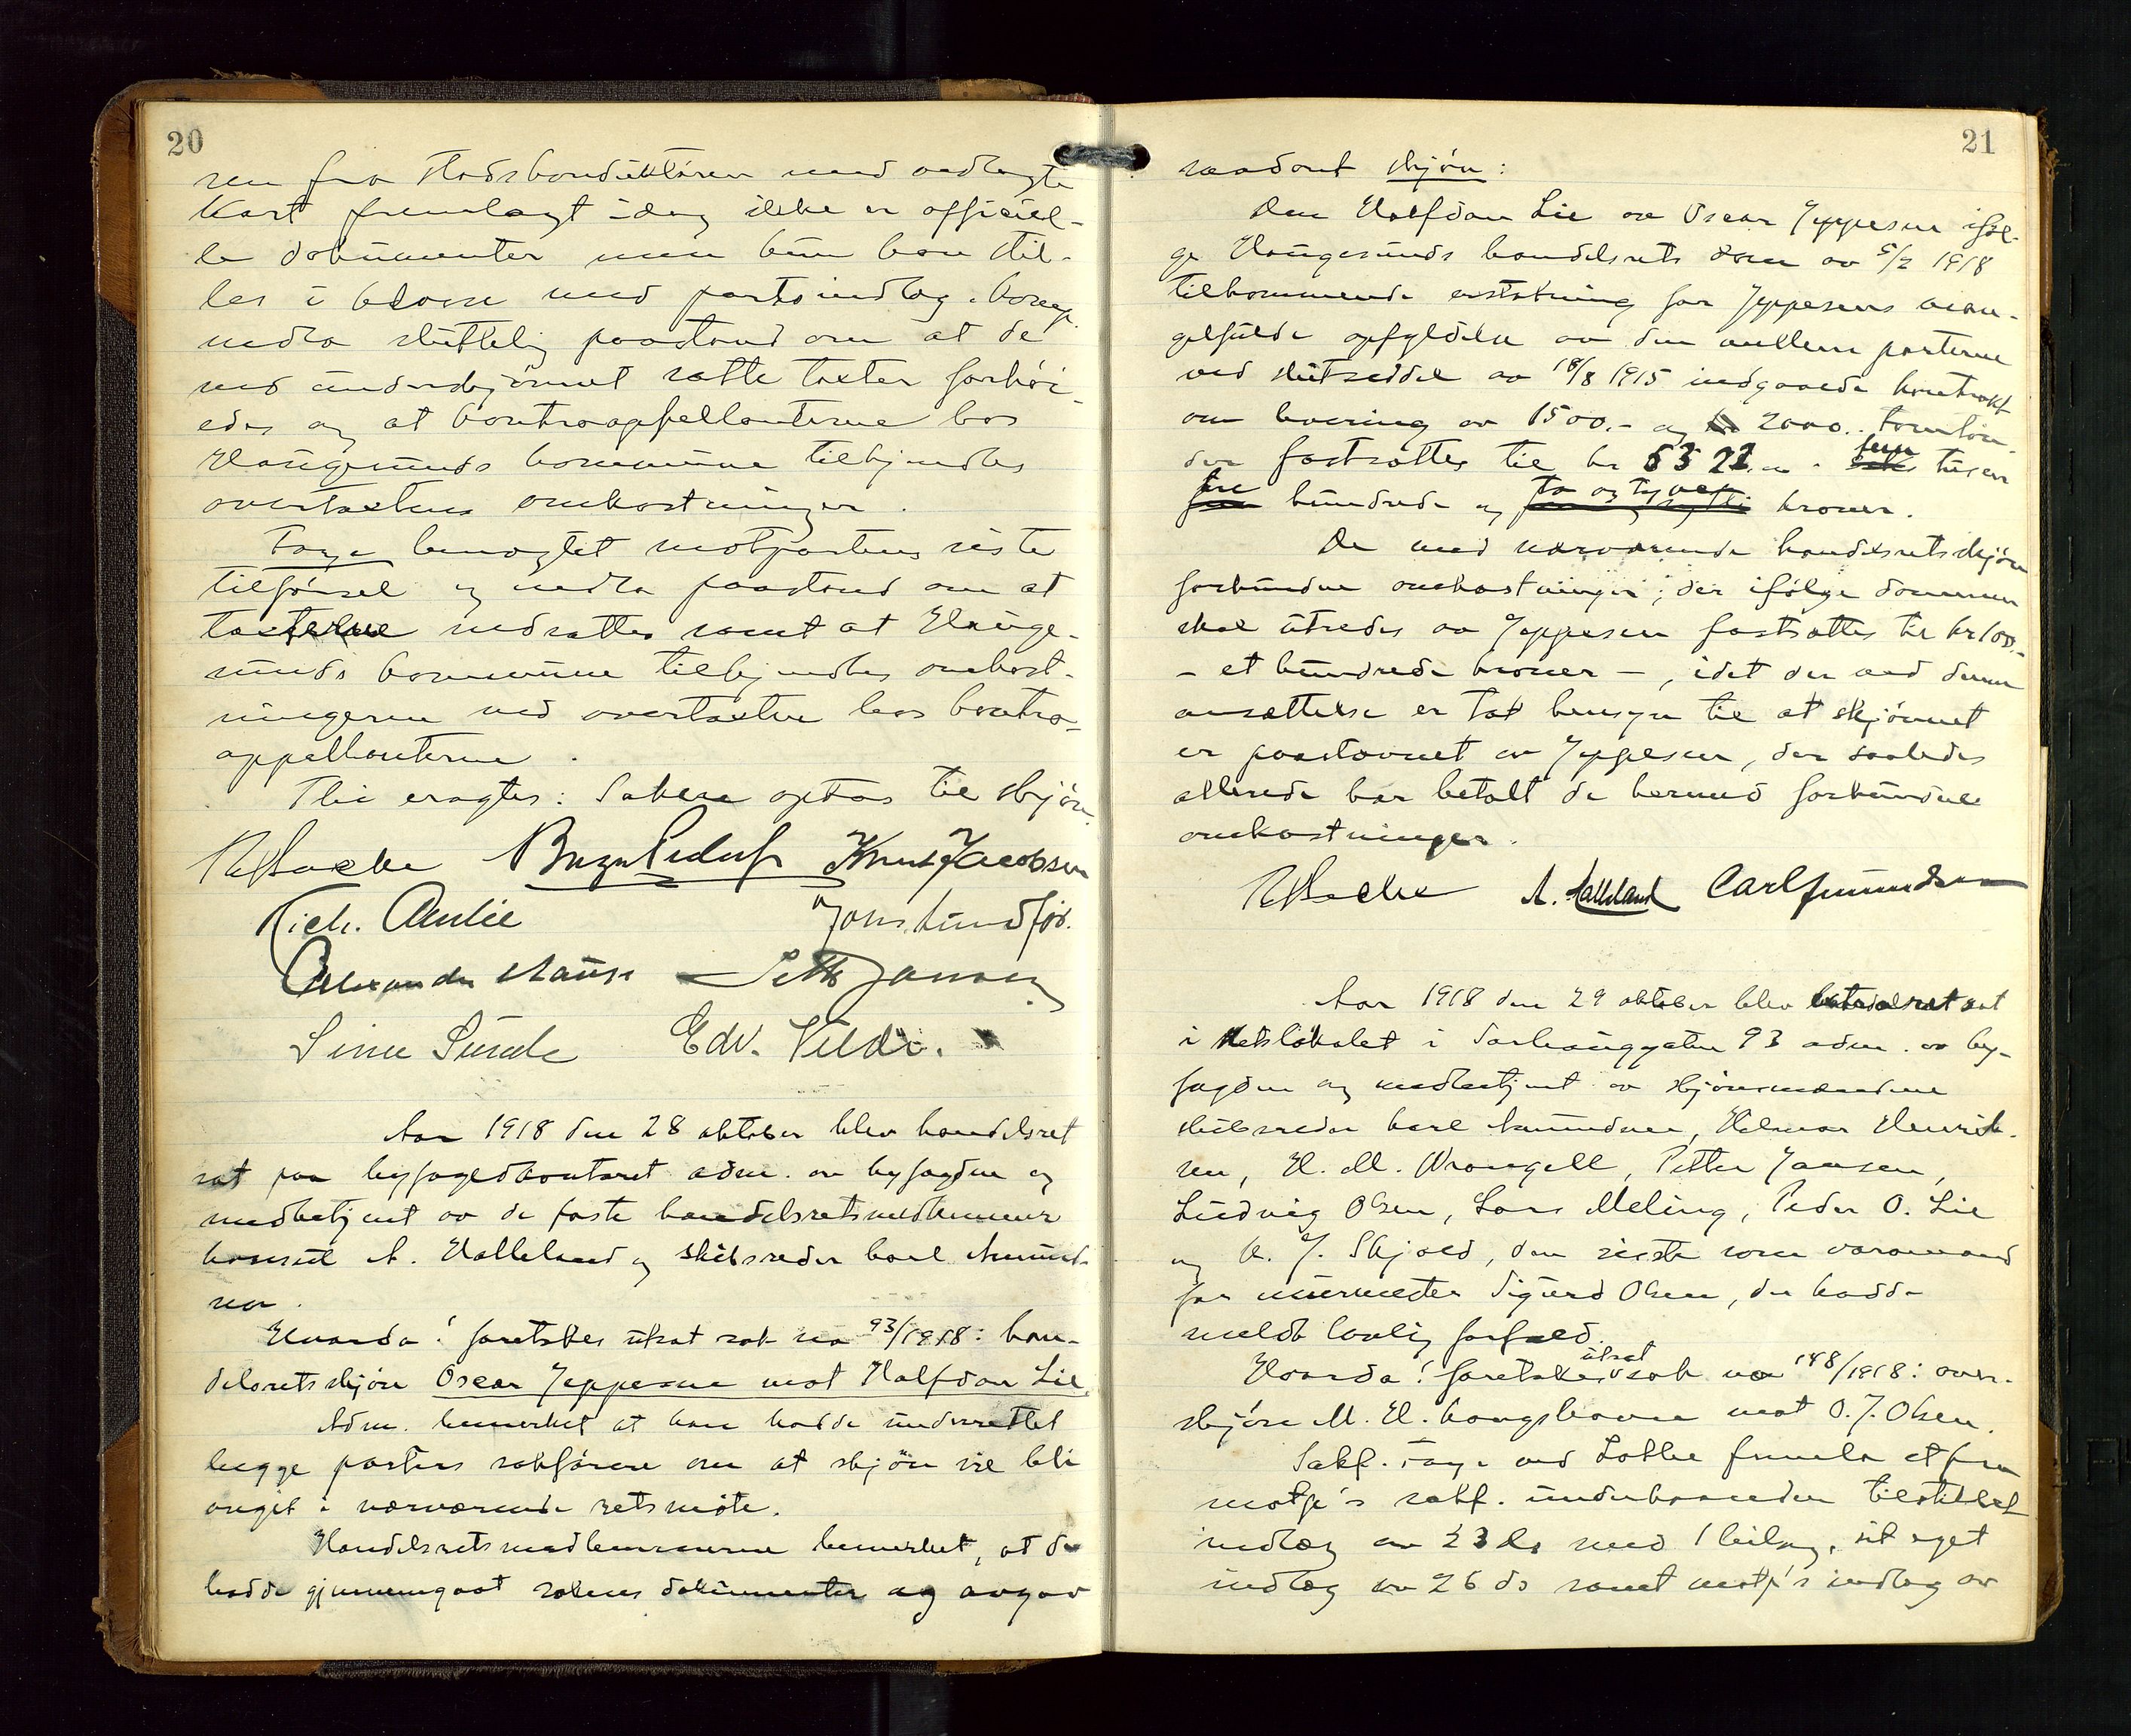 20
sen fra stadskonduktören med vedlagte
Kart fremlagt idag ikke er officiel-
le dokumenter men kun kan stil-
les i klasse med partsindlæg.
nedla sluttelig paastand om at de
ved underskjönnet satte takster forhöi-
edes og at kontraappellanterne hos
Haugesunds kommune tilkjendtes
overtakstens omkostninger.
Fage benegtet motpartens siste
tilförsel og nedla paastand om at
taksterne nedsættes samt at Hauge-
sunds kommune tilkjendtes omkost-
ningerne ved overtaksten hos kontra-
appellanterne.
Thi eragtes: Saken optas til skjön.
Knut Jacobsen
Rich. Amlie
Jons. Lundför.
Alexander Petter Jansen
Sunde Edv.
Aar 1918 den 28 oktober blev handelsret
sat paa byfogedkontoret adm. av byfogden og
medbetjent av de faste handelsretsmedlemmer
konsul A. Halleland og skibsreder Carl Amund-
sen.
Hvorda: foretokes utsat sak no 93/1918: han-
delsretsskjön Oscar Jeppesen mot Halfdan Lie.
Adm. bemerket at han hadde underrettet
begge parters sakförere om at skjön vil bli
avgit i nærværende retsmöte.
Handelsretsmedlemmerne bemerket, at de
hadde gjennemgaat sakens dokumenter og avgav
21
saadant skjön:
Den Halfdan Lie av Oscar Jeppesen iföl-
ge Haugesunds handelsrets dom av 5/2 1918
tilkommende erstatning for Jeppesens man-
gelfulde opfyldelse av den mellem parterne
ved slutseddel av 18/8 1915 indgaaede kontrakt
om levering av 1500.- og 2000.- tomtön-
der fastsættes til kr 5322.- fem tusen
tre hundrede og to og tyve kroner.
De med nærværende handelsretsskjön
forbundne omkostninger, der ifölge dommen
skal utredes av Jeppesen fastsættes til kr 100.-
- et hundrede kroner -, idet der ved denne
ansættelse er tat hensyn til at skjönnet
er paastevnet av Jeppesen, der saaledes
allerede har betalt de hermed forbundne
omkostninger.
A. Halleland Carl Amundsen
Aar 1918 den 29 oktober blev ret sat
i Retslokalet i Sörhauggaten 93 adm. av by-
fogden og medbetjent av skjönsmændene
skibsreder Carl Amundsen, Helmar Henrik-
sen, H. M. Wrangell, Petter Jansen,
Ludvig Olsen, Lars Meling, Peder O. Lie
og K. J. Skjold, den siste som varamand
for murmester Sigurd Olsen, der hadde
meldt lovlig forfald.
Hvorda: foretokes utsat sak no 148/1918: over-
skjön M. H. Kongshavn mot O. J. Olsen.
Sakf. Fage ved Lothe fremla et fra
motp's sakf. underhaanden tilstillet
indlæg av 23 ds med 1 bilag, sit eget
indlæg av 26 ds samt motp's indlæg av